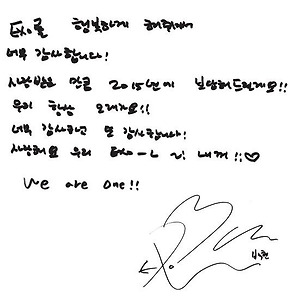 EXO를 행복하게 해줘서
너무 감사합니다!
사랑받은 만큼 2015년에 보답해드릴게요!!
우리 항상 오래가요!!
너무 감사하고 또 감사합니다!
사랑해요 우리 EXO-L 은 내꺼!!♡
We are one!!
백현